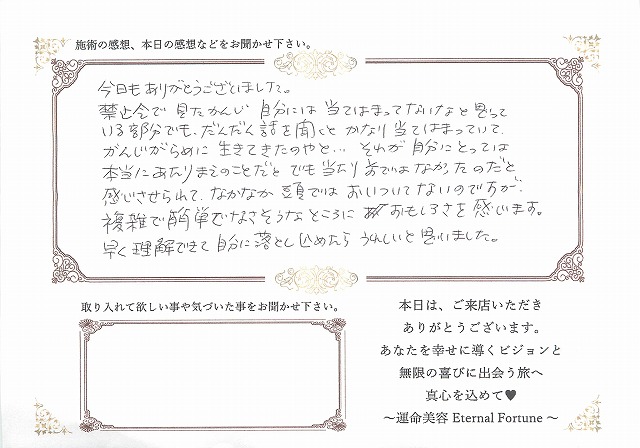 施術の感想、本日の感想などをお聞かせ下さい。
今日もありがとうございました。
禁止令で見たかんじ 自分には当てはまってないなと思って
いる部分でも、だんだん話を聞くと かなり当てはまっていて、
がんじがらめに生きてきたのやと… それが自分にとっては
本当にあたりまえのことだと でも当たり前ではなかったのだと
感じさせられて、なかなか頭ではおいついてないのですが、
複雑で簡単でなさそうなところに おもしろさを感じます。
早く理解できて自分に落とし込めたら うれしいと思いました。
取り入れて欲しい事や気づいた事をお聞かせ下さい。
本日は、ご来店いただき
ありがとうございます。
あなたを幸せに導くビジョンと
無限の喜びに出会う旅へ
真心を込めて♥
～運命美容 Eternal Fortune～